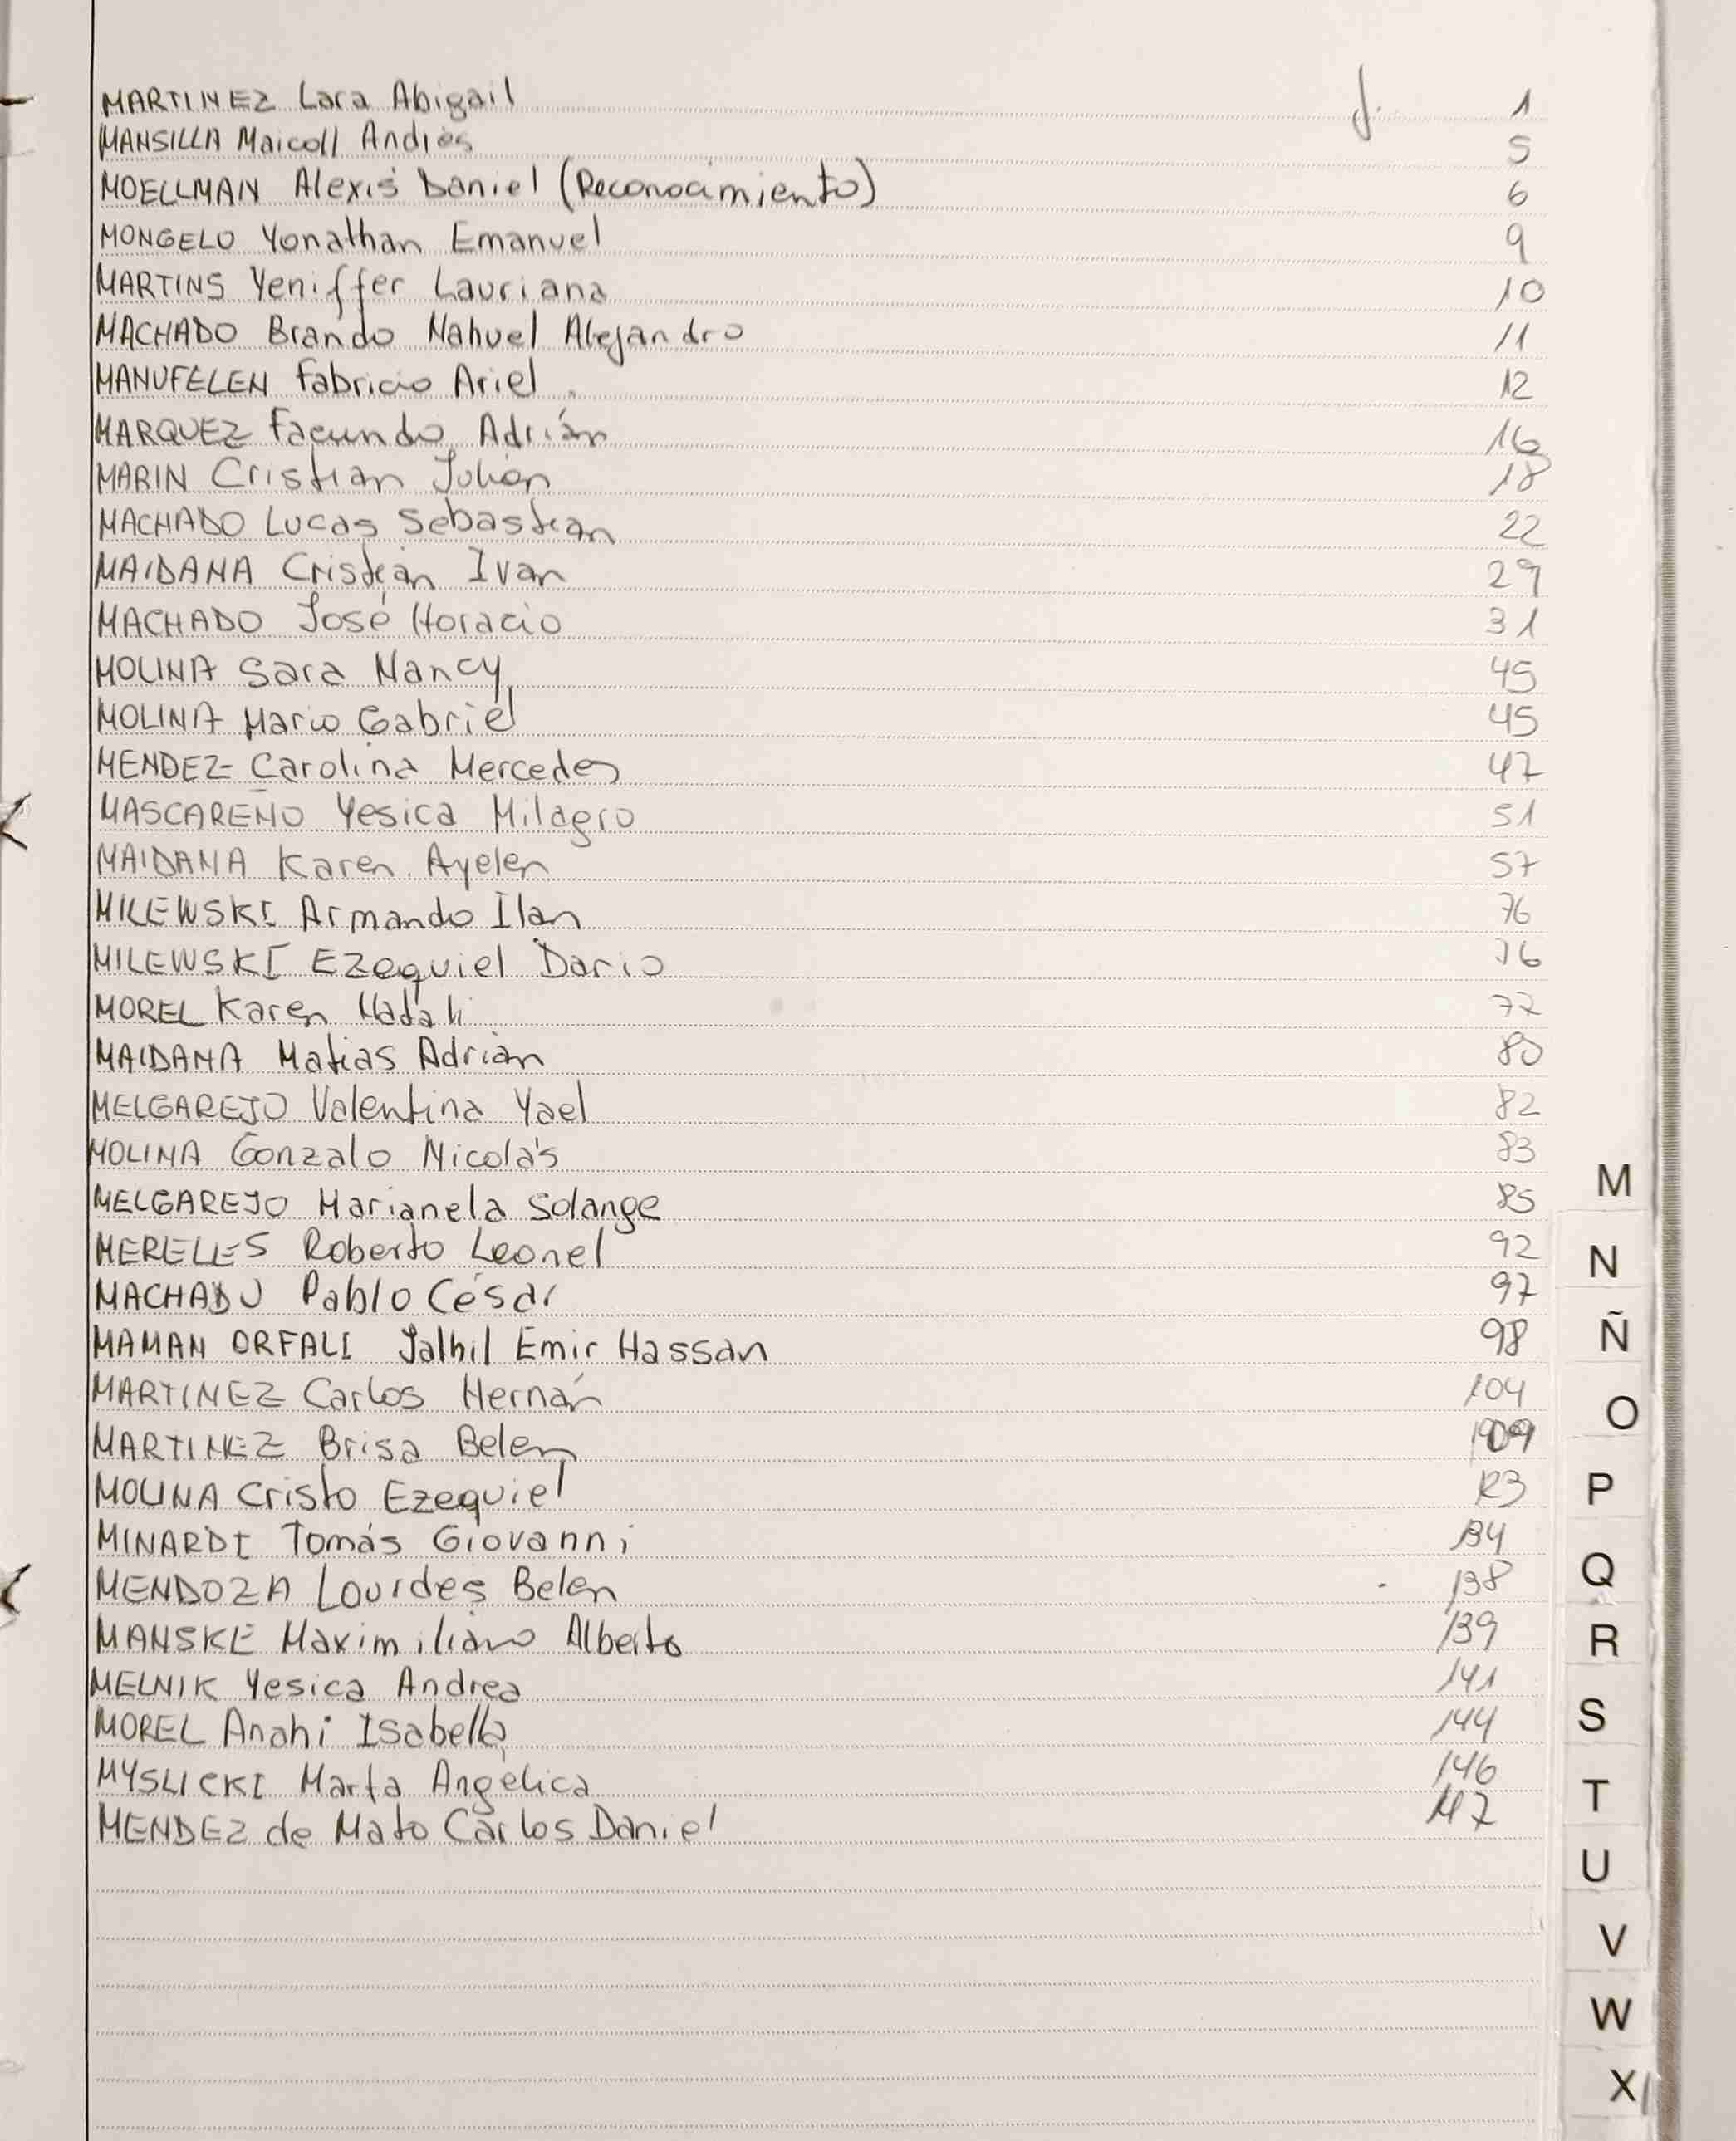 MARTINEZ Lara Abigail f. 1
MANSILLA Maicoll Andrés 5
MOELLMAN Alexis Daniel (Reconocimiento) 6
MONGELO Yonathan Emanuel 9
MARTINS Yeniffer Lauriana 10
MACHADO Brando Nahuel Alejandro 11
MANUFELEN Fabricio Ariel 12
MARQUEZ Facundo Adrián 16
MARIN Cristian Julián 18
MACHADO Lucas Sebastian 22
MAIDANA Cristian Ivan 29
MACHADO José Horacio 31
MOLINA Sara Nancy 45
MOLINA Mario Gabriel 45
MENDEZ Carolina Mercedes 47
MASCAREÑO Yesica Milagro 51
MAIDANA Karen Ayelen 57
MILEWSKI Armando Ilan 76
MILEWSKI Ezequiel Dario 76
MOREL Karen Natali 77
MAIDANA Matias Adrián 80
MELGAREJO Valentina Yael 82
MOLINA Gonzalo Nicolás 83
MELGAREJO Marianela Solange 85
MERELLES Roberto Leonel 92
MACHADO Pablo César 97
MAMAN ORFALI Jalhil Emir Hassan 98
MARTINEZ Carlos Hernán 104
MARTINEZ Brisa Belen 109
MOLINA Cristo Ezequiel 123
MINARDI Tomás Giovanni 134
MENDOZA Lourdes Belen 138
MANSKE Maximiliano Alberto 139
MELNIK Yesica Andrea 141
MOREL Anahi Isabella 144
MYSLICKI Marta Angélica 146
MENDEZ de Mato Carlos Daniel 147
M
N
Ñ
O
P
Q
R
S
T
U
V
W
X